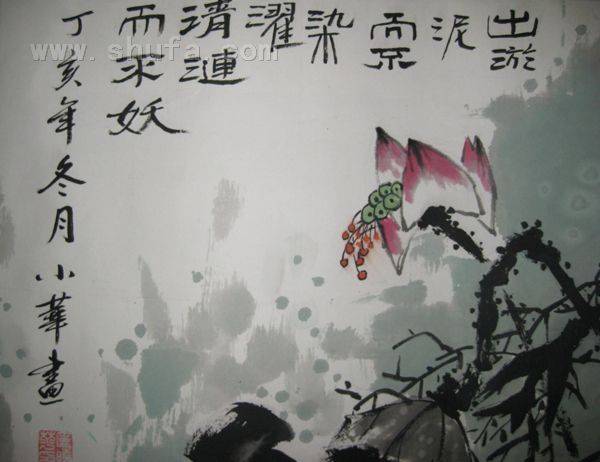 出淤
泥
而不
染
濯
清漣
而不妖
丁亥年冬月小華畫
www.shufa.com